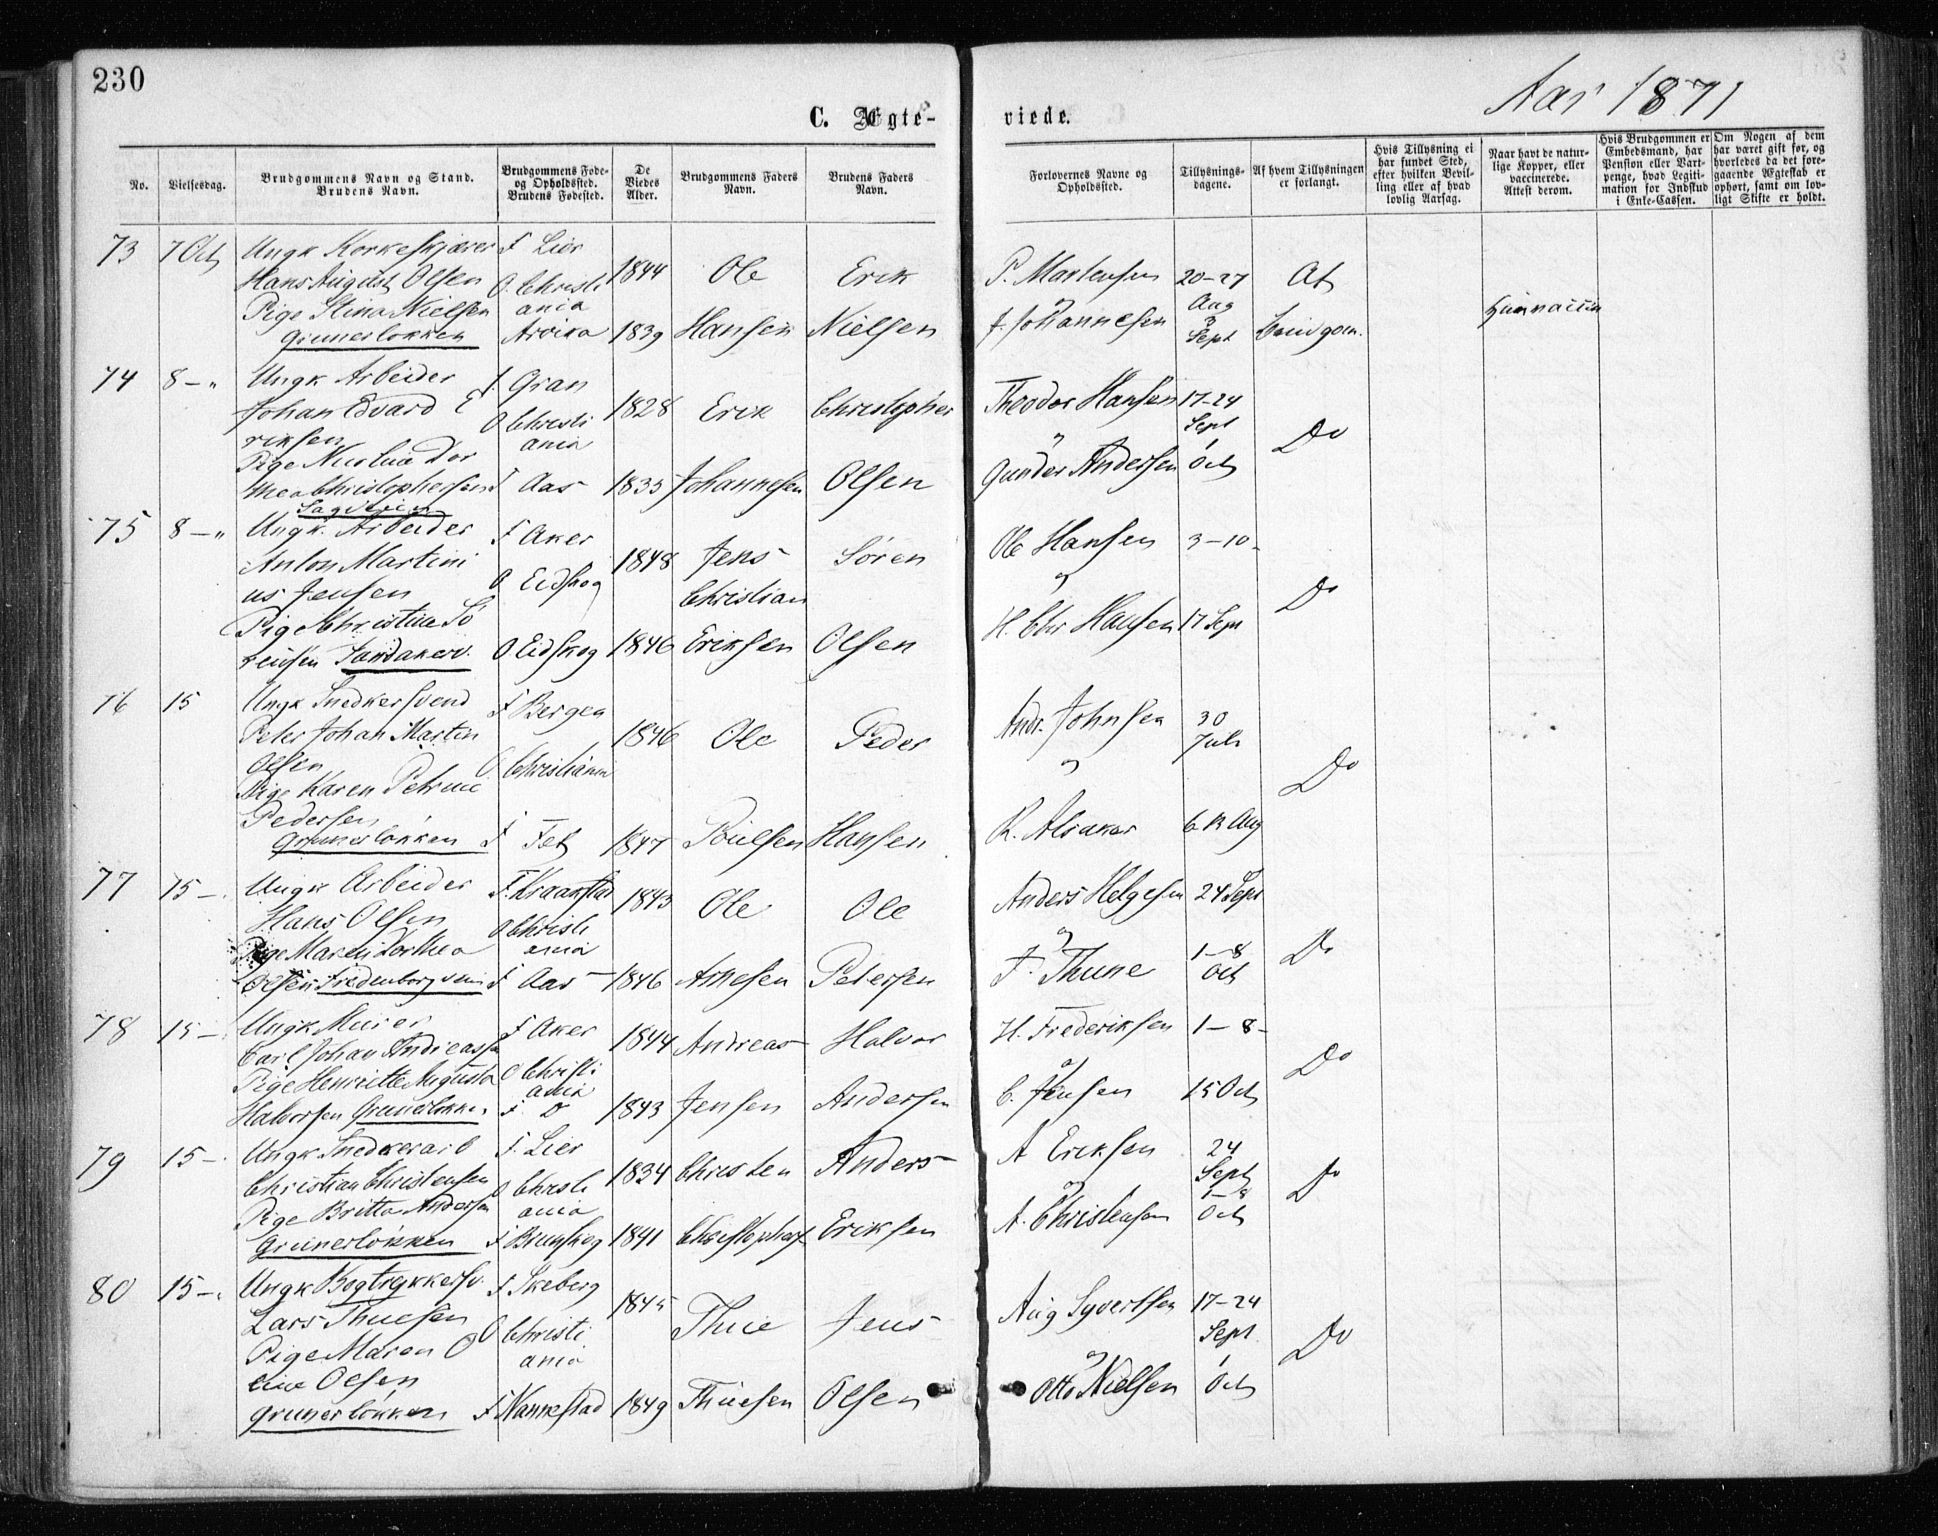 230
Aar 1871
C. Ægte-
viede.
No.
Vielsesdag.
Brudgommens Navn og Stand.
Brudens Navn.
Brudgommens Føde-
og Opholdssted.
Brudens Fødested.
De
Viedes
Alder.
Brudgommens Faders
Navn.
Brudens Faders
Navn.
Forlovernes Navne og
Opholdssted.
Tillysnings-
dagene.
Af hvem Tillysningen
er forlangt.
Hvis Tillysning ei
har fundet Sted,
efter hvilken Bevil-
ling eller af hvad
lovlig Aarsag.
Naar havt de natur-
lige Kopper, eller
vaccinerede.
Attest derom.
Hvis Brudgommen er
Embedsmand, har
Pension eller Vart-
penge, hvad Legiti-
mation for Indskud
i Enke-Cassen.
Om Nogen af dem
har været gift før, og
hvorledes da det fore-
gaaende Ægteskab er
ophørt, samt om lov-
ligt Skifte er holdt.
73 7 Oct Ungk Korkeskjærer F Lier
Hans August Olsen O. Christi 1844 Ole Erik P. Martensen 20–27 Af
Pige Stina Nielsen ania og Aug
Grunerløkken Arvika 1839 Hansen Nielsen J. Johannesen 3 Sept brudgom.
74 8 – " Ungk Arbeider F. Gran
Johan Edvard E O Christi 1828 Erik Christopher Theodor Hansen 17–24
riksen ania og Sept Do
Pige Nicolina Dor
thea Christophersen F Aas 1835 Johannesen Olsen Gunder Andersen 1 Oct
75 8 – " Ungk. Arbeider F Aker
Anton Martini 1848 Jens Søren Ole Hansen 3–10–
us Jensen O Eidskog Christian og Do
Pige Christine Sø H. Chr Hansen 17 Sept
rensen Sandakerv. O Eidskog 1846 Eriksen Olsen
76 15 Ungk Snedkersvend F Bergen
Peter Johan Martin 1846 Ole Peder Andr. Johnsen 30
Olsen O Christiania Juli
Pige Karen Petrine og Do
Pedersen
Grunerløkken F Fet 1847 Poulsen Hansen 6. 13 Aug
77 15 – Ungk Arbeider F. Kraakstad
Hans Olsen O Christi 1843 Ole Ole Anders Helgesen 24 Sept
Pige Maren Dorthea ania og 1–8 Do
Olsen Fredenborgveien F Aas 1846 Arnesen Petersen F. Thune Oct
78 15 – Ungk Murer F Aker 1844 Andreas Halvor H. Frederiksen 1–8–
Carl Johan Andreassen
Pige Henriette Augusta O Christi og Do
ania
Halvorsen Grunerløkken F. Do 1843 Jensen Andersen C. Jensen 15 Oct
79 15 – Ungk Snedkerarb F. Lier A Eriksen 24
Christian Christensen O Christi 1834 Christen Anders Sept Do
Pige Britta Andersen ania og 1–8
Grunerløkken F Brunskog 1841 Christophers Eriksen A. Christensen Oct
80 15 – Ungk Bogtrykkersv. F Skeberg
Lars Thuesen 1845 Aug Syvertsen 17–24
Pige Maren O O Christi Thue Jens Sept. Do
line Olsen ania og 1
Grunerløkken F Nannestad 1849 Thuesen Olsen Otto Nielsen Oct